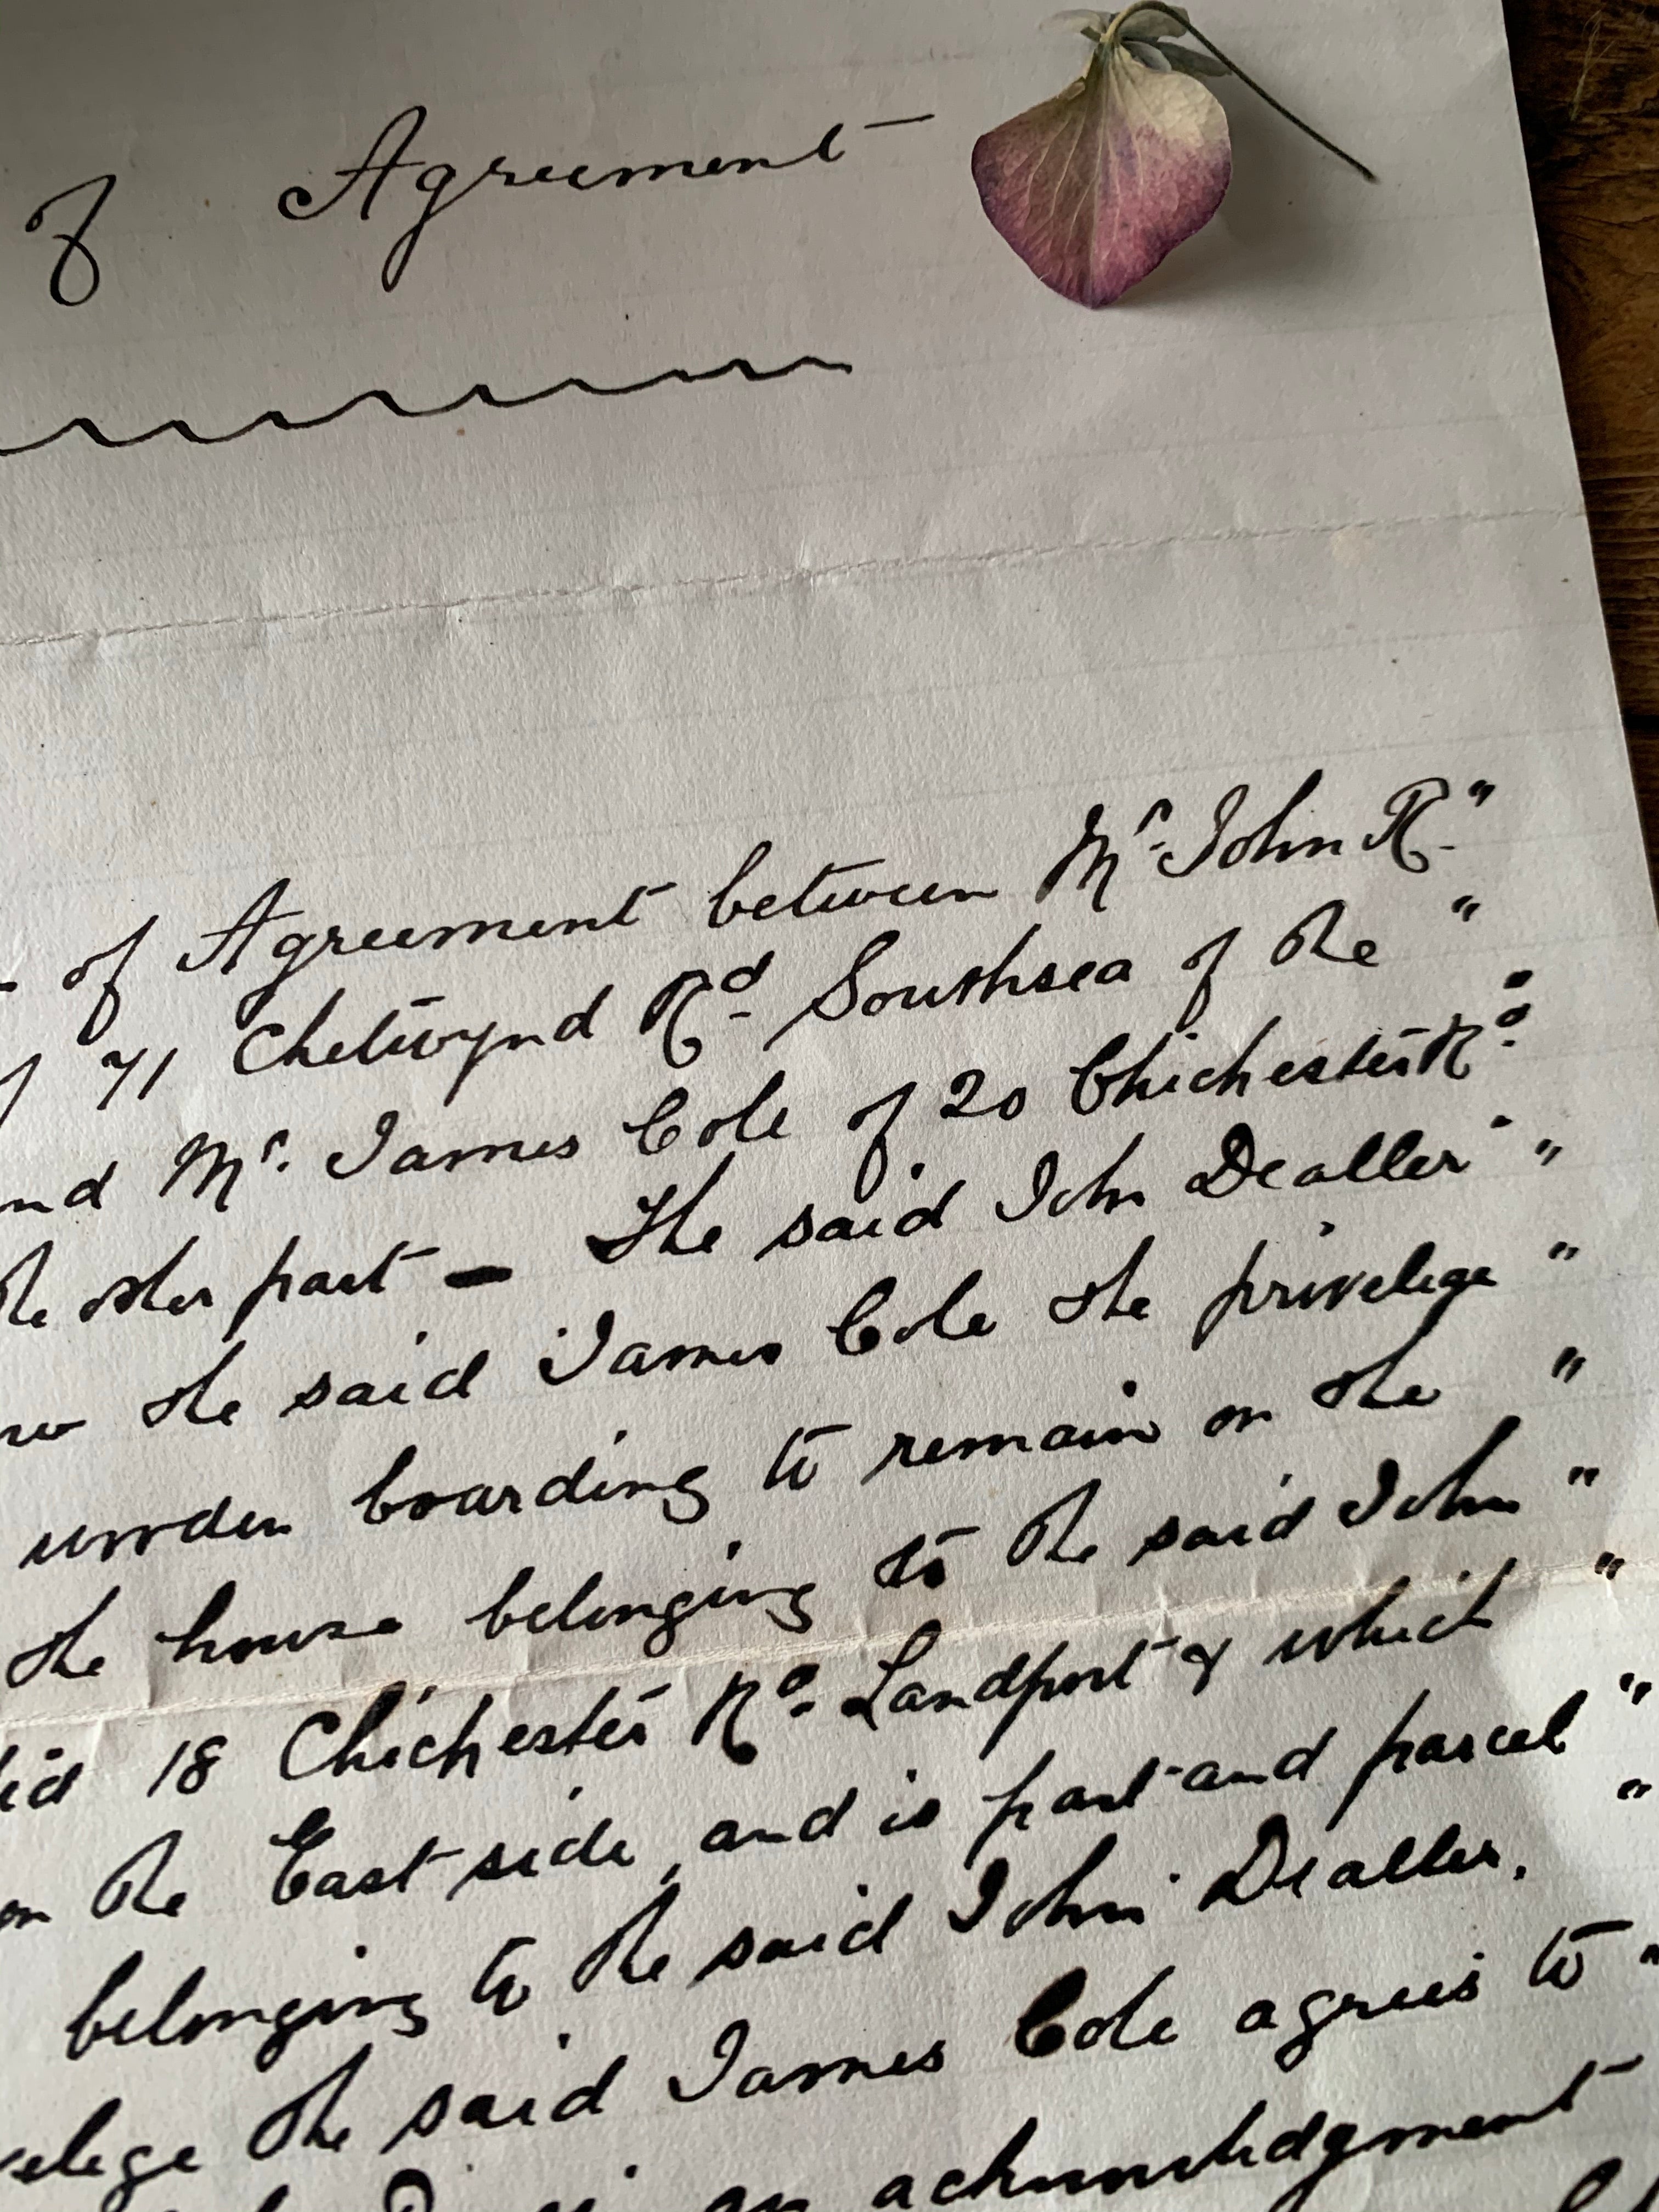 of Agreement
of Agreement between Mr. John R. "
71 Chetwynd Rd. Southsea of the "
nd Mr. James Cole of 20 Chichester Rd. "
the other part - The said John Dealler "
the said James Cole the privelege "
wooden boarding to remain on the "
the house belonging to the said John "
18 Chichester Rd. Landport & which "
on the East side, and is part and parcel "
belonging to the said John Dealler. "
elege the said James Cole agrees to "
an acknowledgment